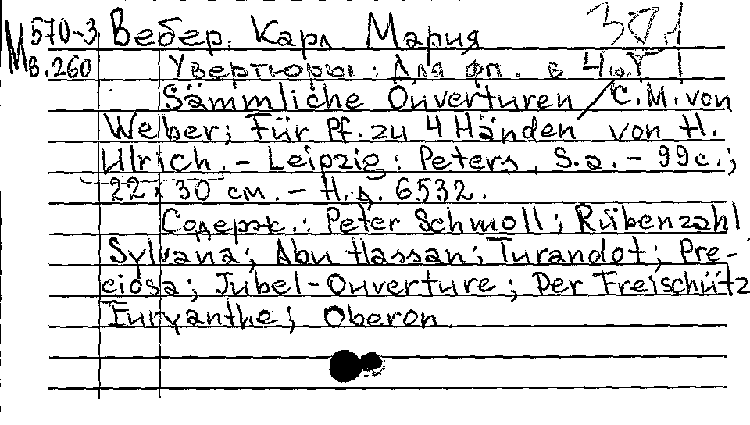 М 570-3 Вебер, Карл Мария 301
В.260 Увертюры: Для фп. в 4 р.
Sämmliche Ouverturen / C.M. von
Weber; Für Pf. zu 4 Händen von H.
Ulrich. – Leipzig: Peters, S.a. – 99 с.;
22 x 30 см. – Н.д. 6532.
Содерж.: Peter Schmoll; Rübenzahl
Sylvana; Abu Hassan; Turandot; Pre-
ciosa; Jubel-Ouverture; Der Freischütz
Euryanthe; Oberon